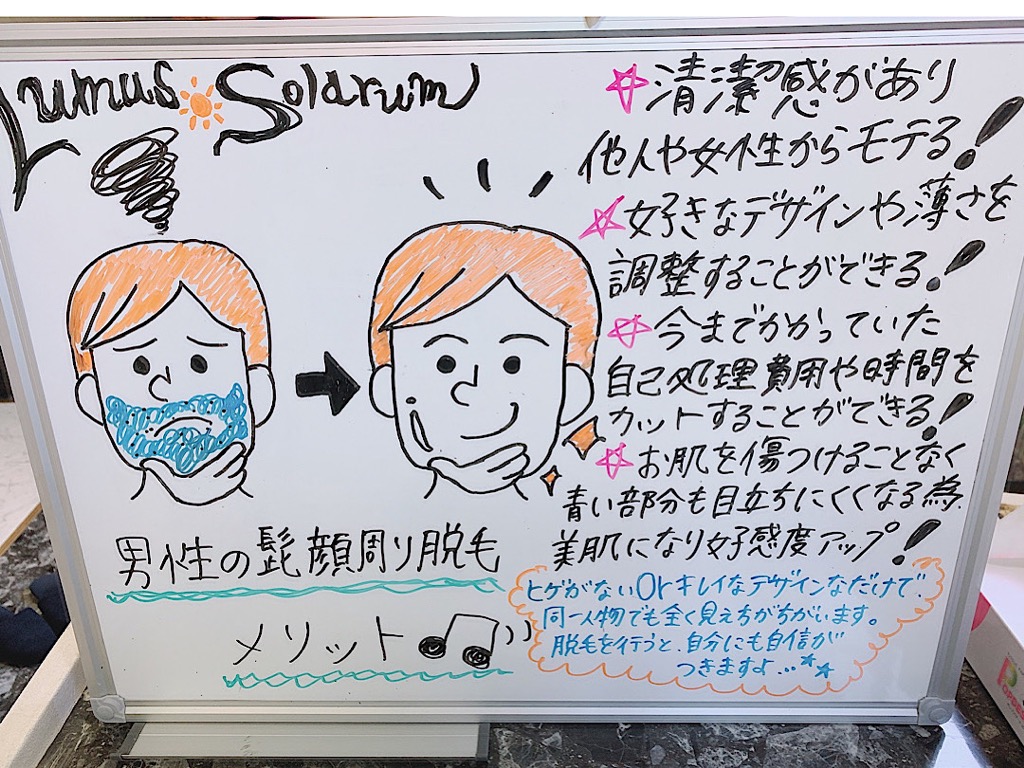 Lumus Solarum
清潔感があり
他人や女性からモテる!
好きなデザインや薄さを
調整することができる!
今までかかっていた
自己処理費用や時間を
カットすることができる!
お肌を傷つけることなく
青い部分も目立ちにくくなる為、
美肌になり好感度アップ!
男性の髭顔周り脱毛
メリット
ヒゲがないOrキレイなデザインなだけで、
同一人物でも全く見えちがちがいます。
脱毛を行うと、自分にも自信が
つきますよ...